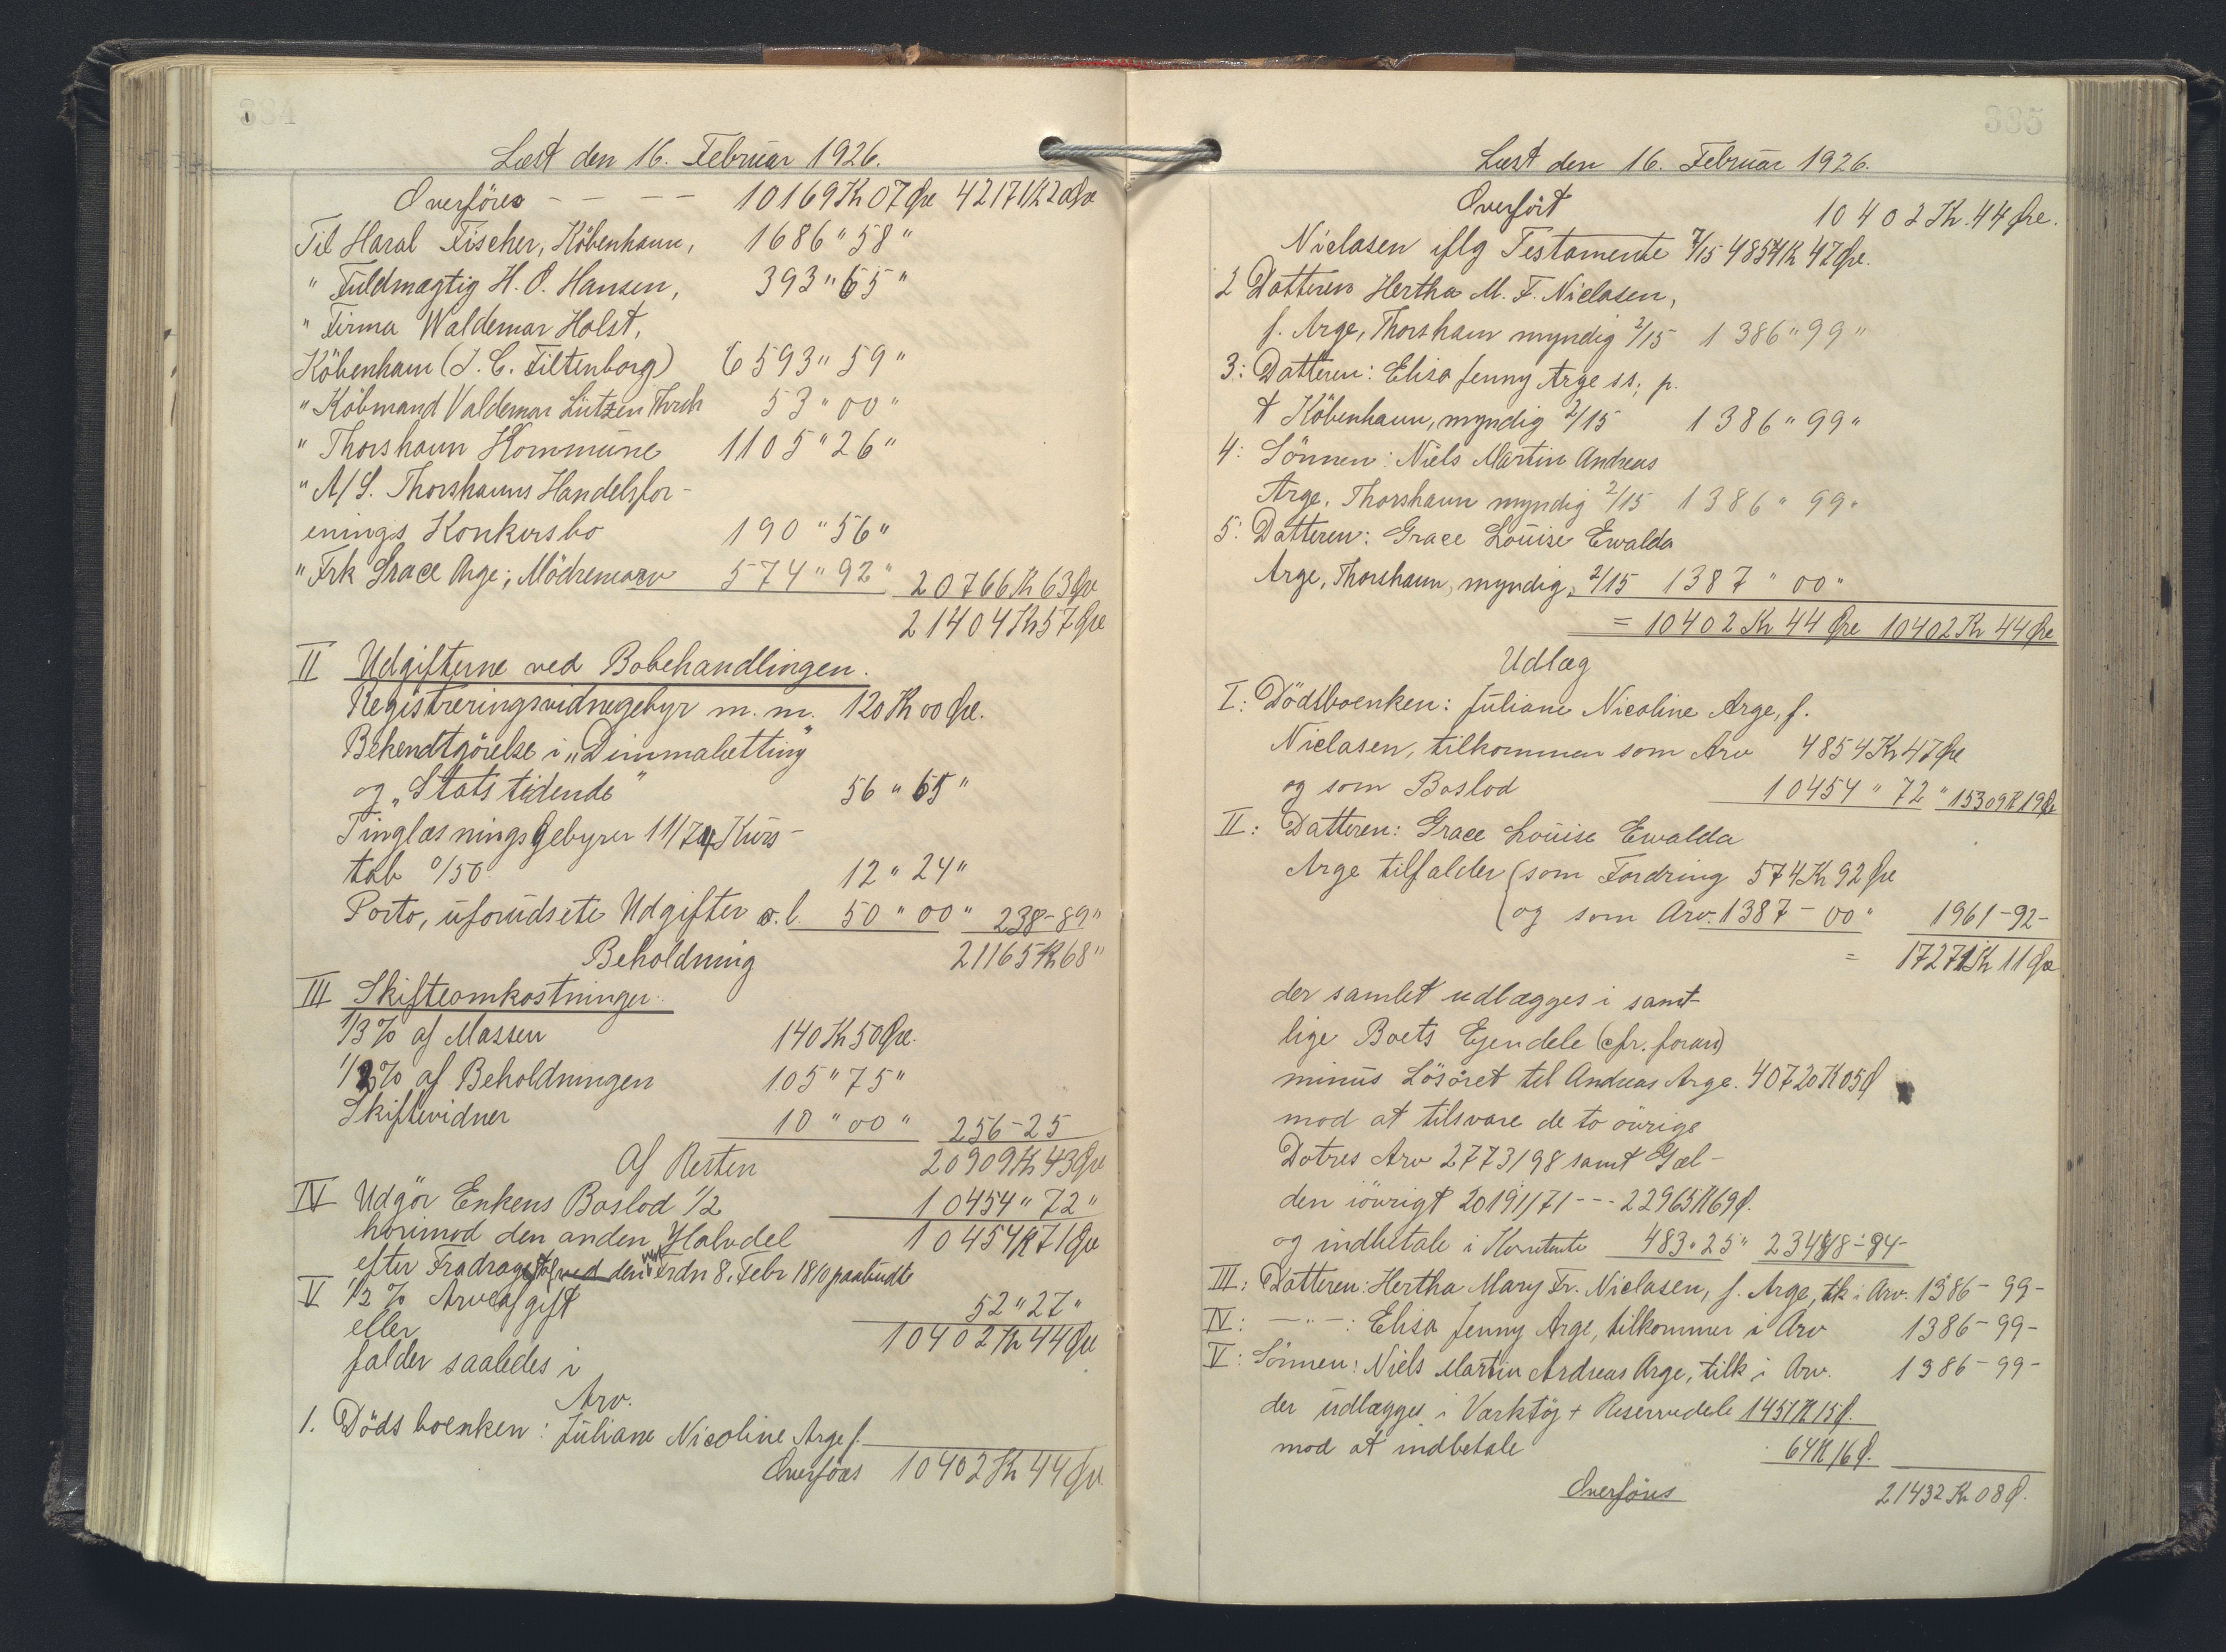 334
Læst den 16. Februar 1926.
Overföres - - - - 10169 Kr 07 Øre 42171 K 20 Øre
Til Haral Fischer, Köbenhavn, 1686 " 58 "
" Fuldmægtig H. O. Hansen, 393 " 65 "
" Firma Waldemar Holst,
Köbenhavn (J. C. Filtenborg) 6593 " 59 "
" Köbmand Valdemar Lützen Thrsh 53 " 00 "
" Thorshavn Kommune 1105 " 26 "
" A/S. Thorshavns Handelsfor-
enings Konkursbo 190 " 56 "
" Frk Grace Arge; Mödrenearv 574 " 92 " 20766 Kr 63 Øre
21404 Kr 57 Øre
II Udgifterne ved Bobehandlingen.
Registreringsvidnegebyr m. m. 120 Kr 00 Øre.
Bekendtgörelse i „Dimmalætting"
og „Statstidende" 56 " 65 "
Tinglæsningsgebyrer 11/74 Kurs-
tab 0/50 12 " 24 "
Porto, uforudsete Udgifter o. l. 50 " 00 " 238 - 89 "
Beholdning 21165 Kr 68 "
III Skifteomkostninger.
1/3 % af Massen 140 Kr 50 Øre.
1/2 % af Beholdningen 105 " 75 "
Skiftevidner 10 " 00 " 256 - 25
Af Resten 20909 Kr 43 Øre
IV Udgör Enkens Boslod 1/2 10454 " 72 "
hvorimod den anden Halvdel 10454 K 71 Øre
efter Fradrag af den ved Frdn 8. Febr 1810 paabudte
V 1/2 % Arveafgift 52 " 27 "
eller 10402 Kr 44 Øre
falder saaledes i
Arv.
1. Dödsboenken: Juliane Nicoline Arge f.
Overföres 10402 Kr 44 Øre
335
Læst den 16. Februar 1926.
Overfört 10402 Kr. 44 Øre.
Niclasen iflg Testamente 7/15 4854 K 47 Øre.
2 Datteren Hertha M. F. Niclasen,
f. Arge, Thorshavn myndig 2/15 1386 " 99 "
3: Datteren: Elisa Jenny Arge ss; p.
t Köbenhavn, myndig 2/15 1386 " 99 "
4: Sönnen: Niels Martin Andreas
Arge, Thorshavn myndig 2/15 1386 " 99 "
5: Datteren: Grace Louise Ewalda
Arge, Thorshavn, myndig, 2/15 1387 " 00 "
= 10402 Kr 44 Øre 10402 Kr 44 Øre
Udlæg
I: Dödsboenken: Juliane Nicoline Arge, f.
Niclasen, tilkommer som Arv 4854 Kr 47 Øre
og som Boslod 10454 " 72 " 15309 K 19 Ø
II: Datteren: Grace Louise Ewalda
Arge tilfalder (som Fordring 574 Kr 92 Øre
(og som Arv. 1387 - 00 " 1961 - 92 -
= 17271 Kr 11 Øre
der samlet udlægges i samt-
lige Boets Ejendele (cfr. foran)
minus Lösöret til Andreas Arge. 40720 K 05 Ø
mod at tilsvare de to övrige
Dotres Arv 2773/98 samt Gæl-
den iövrigt 20191/71 - - - 22965 K 69 Ø.
og indbetale i Kontante 483 " 25 " 23448 - 94 -
III: Datteren: Hertha Mary Fr. Niclasen, f. Arge, tk i Arv. 1386 - 99 -
IV: - " -: Elisa Jenny Arge, tilkommer i Arv 1386 - 99 -
V: Sönnen: Niels Martin Andreas Arge, tilk i Arv. 1386 - 99 -
der udlægges i Værktöj + Reservedele 1451 K 15 Ø.
mod at indbetale 64 K 16 Ø.
Overföres 21432 Kr 08 Ø.